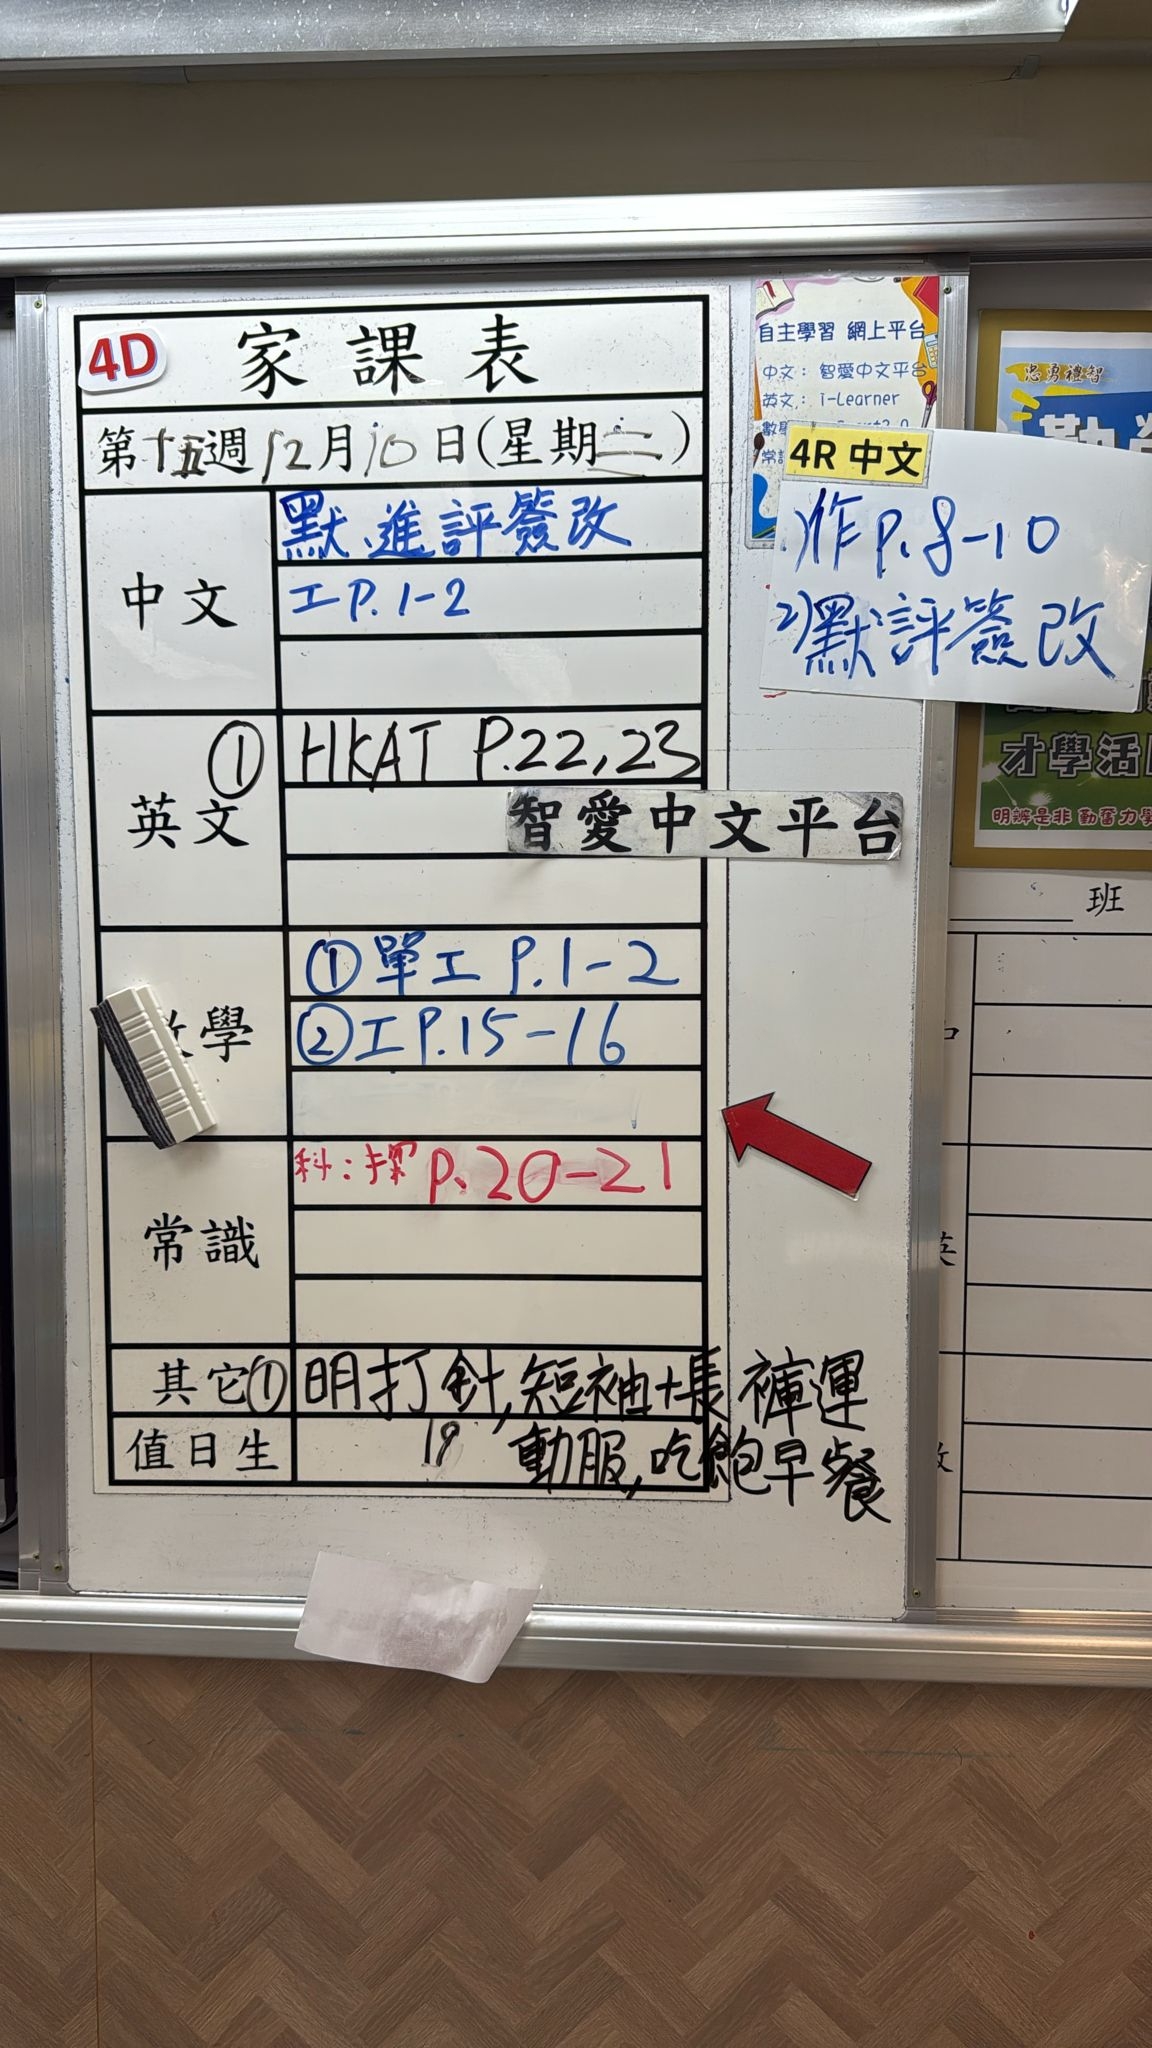 4D
家課表
第十五週12月10日(星期二)
中文
默進評簽改
工P.1-2
英文
① HKAT P.22,23
智愛中文平台
數學
①單工 P.1-2
②工P.15-16
常識
科:探 P.20-21
其它
①明打針,短袖+長褲運
動服,吃飽早餐
值日生
19
自主學習 網上平台
中文: 智愛中文平台
英文: i-Learner
4R 中文
1)作P.8-10
2)默評簽改
忠勇禮智
才學活
明辨是非 勤奮力學
班
英